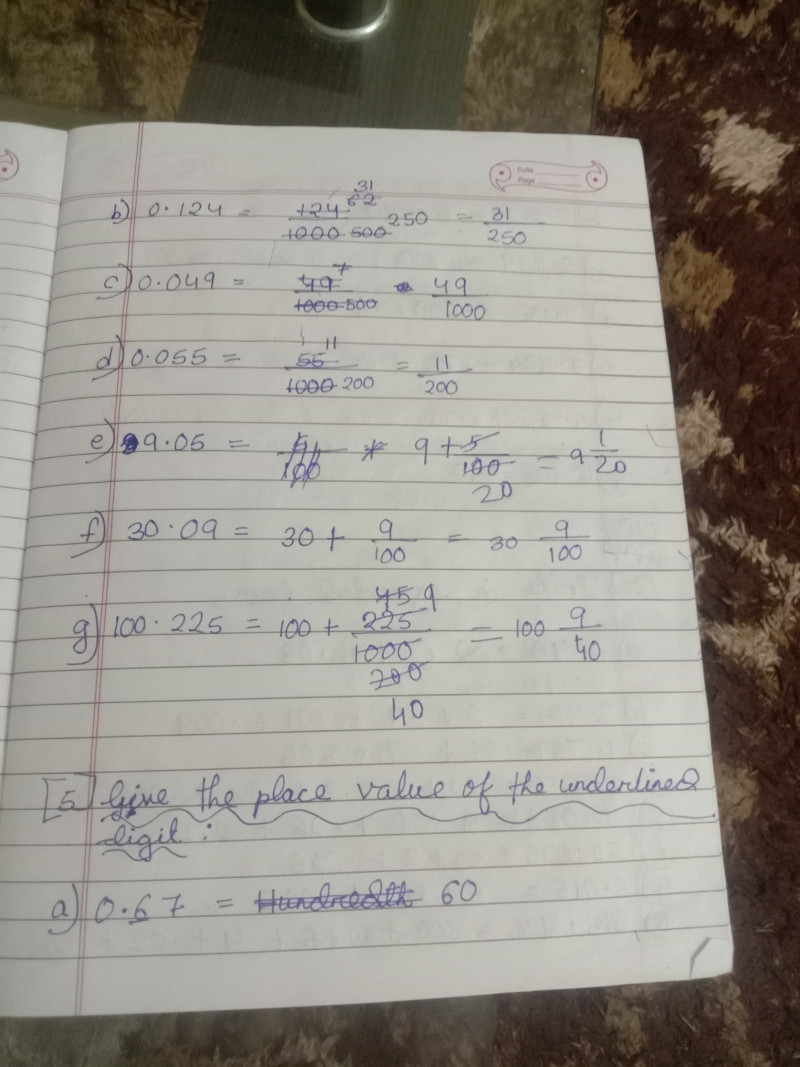 Date
Page
31
b) 0.124 = 124 62 / 1000 500 250 = 31/250
c) 0.049 = 49 7 / 1000 500 49/1000
11
d) 0.055 = 55 / 1000 200 = 11/200
e) 9.05 = 5/100 9 + 5/100 = 9 1/20
20
f) 30.09 = 30 + 9/100 = 30 9/100
45 9
g) 100.225 = 100 + 225/1000 = 100 9/40
200
40
[5] Give the place value of the underlined
digit :
a) 0.67 = Hundredth 60